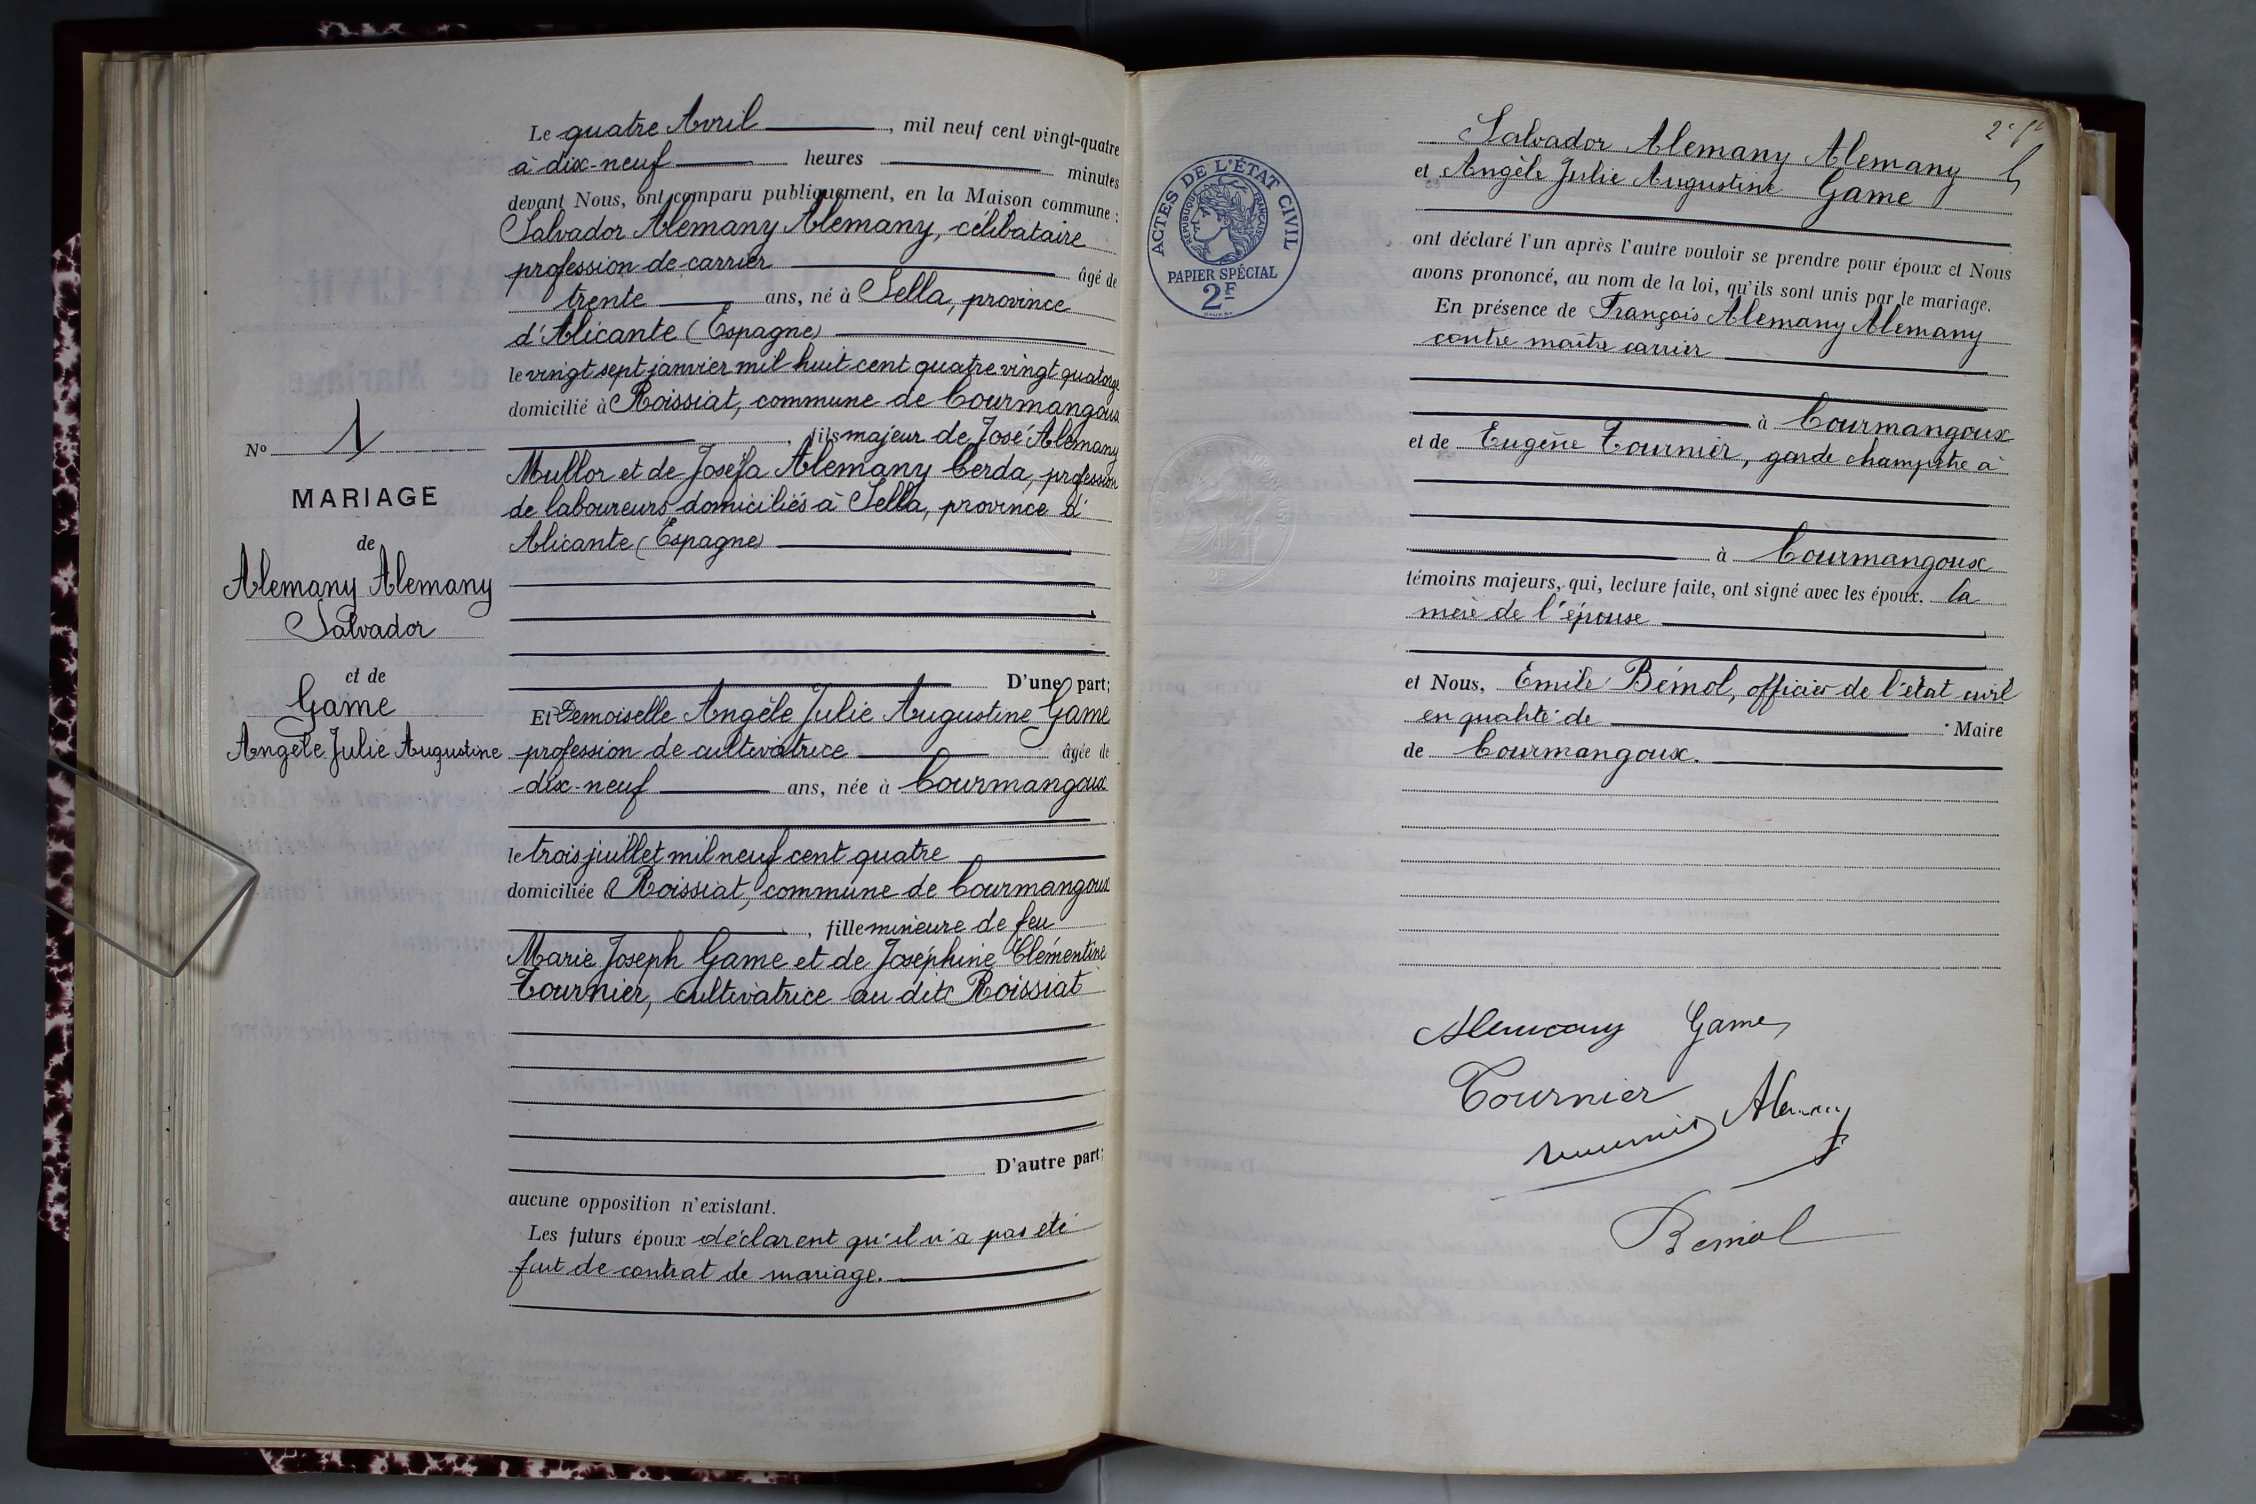 Le quatre Avril, mil neuf cent vingt-quatre
à dix-neuf heures minutes
devant Nous, ont comparu publiquement, en la Maison commune :
Salvador Alemany Alemany, célibataire
profession de carrier âgé de
trente ans, né à Sella, province
d'Alicante (Espagne)
le vingt sept janvier mil huit cent quatre vingt quatorze
domicilié à Roissiat, commune de Courmangoux
, fils majeur de José Alemany
Mullor et de Josefa Alemany Cerda, profession
de laboureurs domiciliés à Sella, province d'
Alicante (Espagne)
D'une part;
Et Demoiselle Angèle Julie Augustine Game
profession de cultivatrice âgée de
dix-neuf ans, née à Courmangoux
le trois juillet mil neuf cent quatre
domiciliée à Roissiat, commune de Courmangoux
, fille mineure de feu
Marie Joseph Game et de Joséphine Clémentine
Tournier, cultivatrice au dit Roissiat
D'autre part;
aucune opposition n'existant.
Les futurs époux déclarent qu'il n'a pas été
fait de contrat de mariage.
No 1
MARIAGE
de
Alemany Alemany
Salvador
et de
Game
Angèle Julie Augustine
ACTES DE L'ÉTAT CIVIL
RÉPUBLIQUE FRANÇAISE
PAPIER SPÉCIAL
2F
Salvador Alemany Alemany
et Angèle Julie Augustine Game
ont déclaré l'un après l'autre vouloir se prendre pour époux et Nous
avons prononcé, au nom de la loi, qu'ils sont unis par le mariage.
En présence de François Alemany Alemany
contre maître carrier
à Courmangoux
et de Eugène Tournier, garde champêtre à
à Courmangoux
témoins majeurs, qui, lecture faite, ont signé avec les époux. la
mère de l'épouse
et Nous, Emile Bémol, officier de l'état civil
en qualité de Maire
de Courmangoux.
Alemany Game
Tournier
Alemany
Bémol